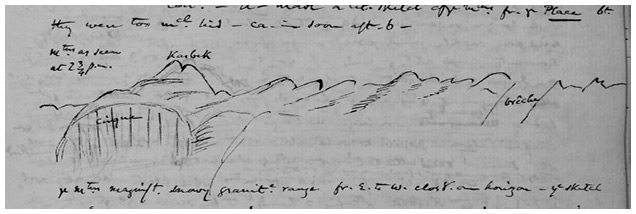 con. – made a lit. sketch of ye mtns fr. ye Place bt.
they were too mch hid – ca. in soon aft. 6 –
mtns as seen
at 2 3/4 p.m.
Kasbek
cirque
brèche
ye mtns magnift. snowy granitc range fr. E. to W. clos on horizon – ye sketch